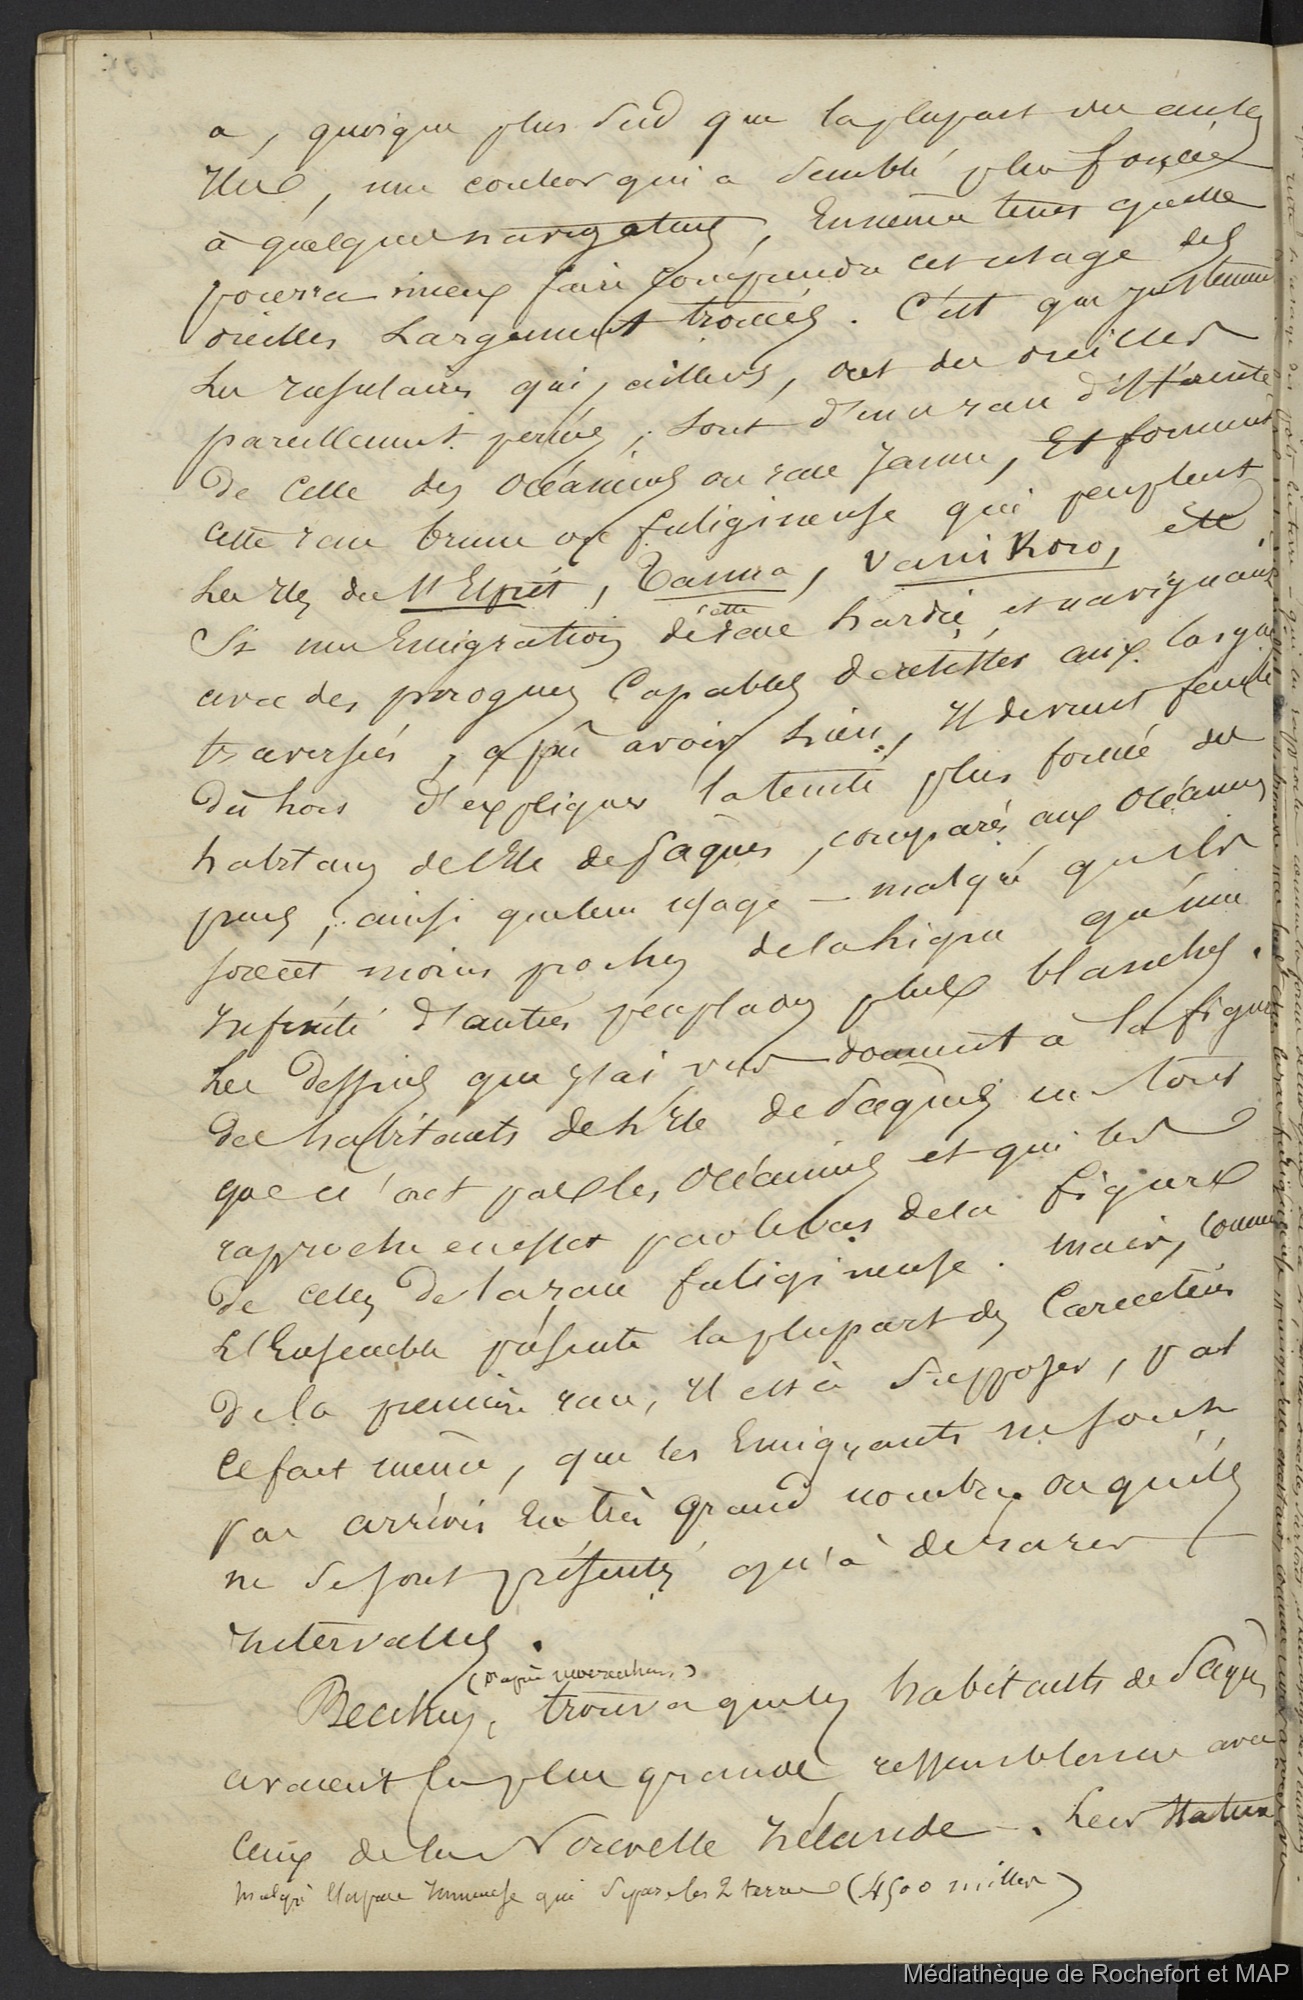 a, quoique plus Sud que la plupart des autres
Iles, une couleur qui a semblé plus foncée
à quelques navigateurs, En même tems qu'elle
pourra mieux faire comprendre cet usage des
oreilles Largement trouées. C'est que justement
Les insulaires qui, ailleurs, ont des oreilles
pareillement percées, sont d'une race différente
de celle des Océaniens ou race Jaune, Et forment
cette race brune ou fuligineuse qui peuplent
Les Iles du St Esprit, Tanna, Vanikoro, etc
Si une Emigration de cette race hardie, et naviguant
avec des pirogues Capables de resister aux longues
traversées, a pu avoir lieu, Il devient facile
du hors d'expliquer la teinte plus foncée des
habitans de l'Ile de Pâques, comparés aux Océaniens
purs, ainsi que leur usage — malgré qu'ils
soient moins proches de la ligne qu'une
Infinité d'autres peuplades plus blanches.
Les Dessins que j'ai vus donnent à la figure
des habitants de l'Ile de Pâques un tout
que n'ont pas les Océaniens et qui les
rapproche en effet par le bas de la figure
de celles de la race fuligineuse. Mais, comme
L'Ensemble présente la plupart des Caractères
de la première race, Il est à Supposer, par
ce fait même, que les Emigrants ne sont
pas arrivés En très grand nombre ou qu'ils
ne se sont présentés qu'à de rares
Intervalles.
(D'après Moerenhout)
Beechey, trouva que les habitants de Pâques
avaient la plus grande ressemblance avec
ceux de la Nouvelle Zélande —. Leur Stature
Malgré l'espace Immense qui Sépare les 2 terres (4500 milles)
Médiathèque de Rochefort et MAP